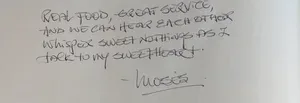 REAL FOOD, GREAT SERVICE,
AND WE CAN HEAR EACH OTHER
WHISPER SWEET NOTHINGS AS I
TALK TO MY SWEETHEART.
- Moses